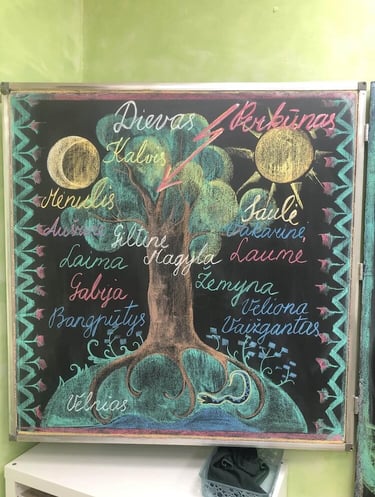 Dievas Perkūnas
Kalvis
Menulis Saulė
Aušrinė Giltinė Vakarinė
Laima Magyla Laumė
Gabija Žemyna
Bangpūtys Veliona
Vaižgantas
Velnias